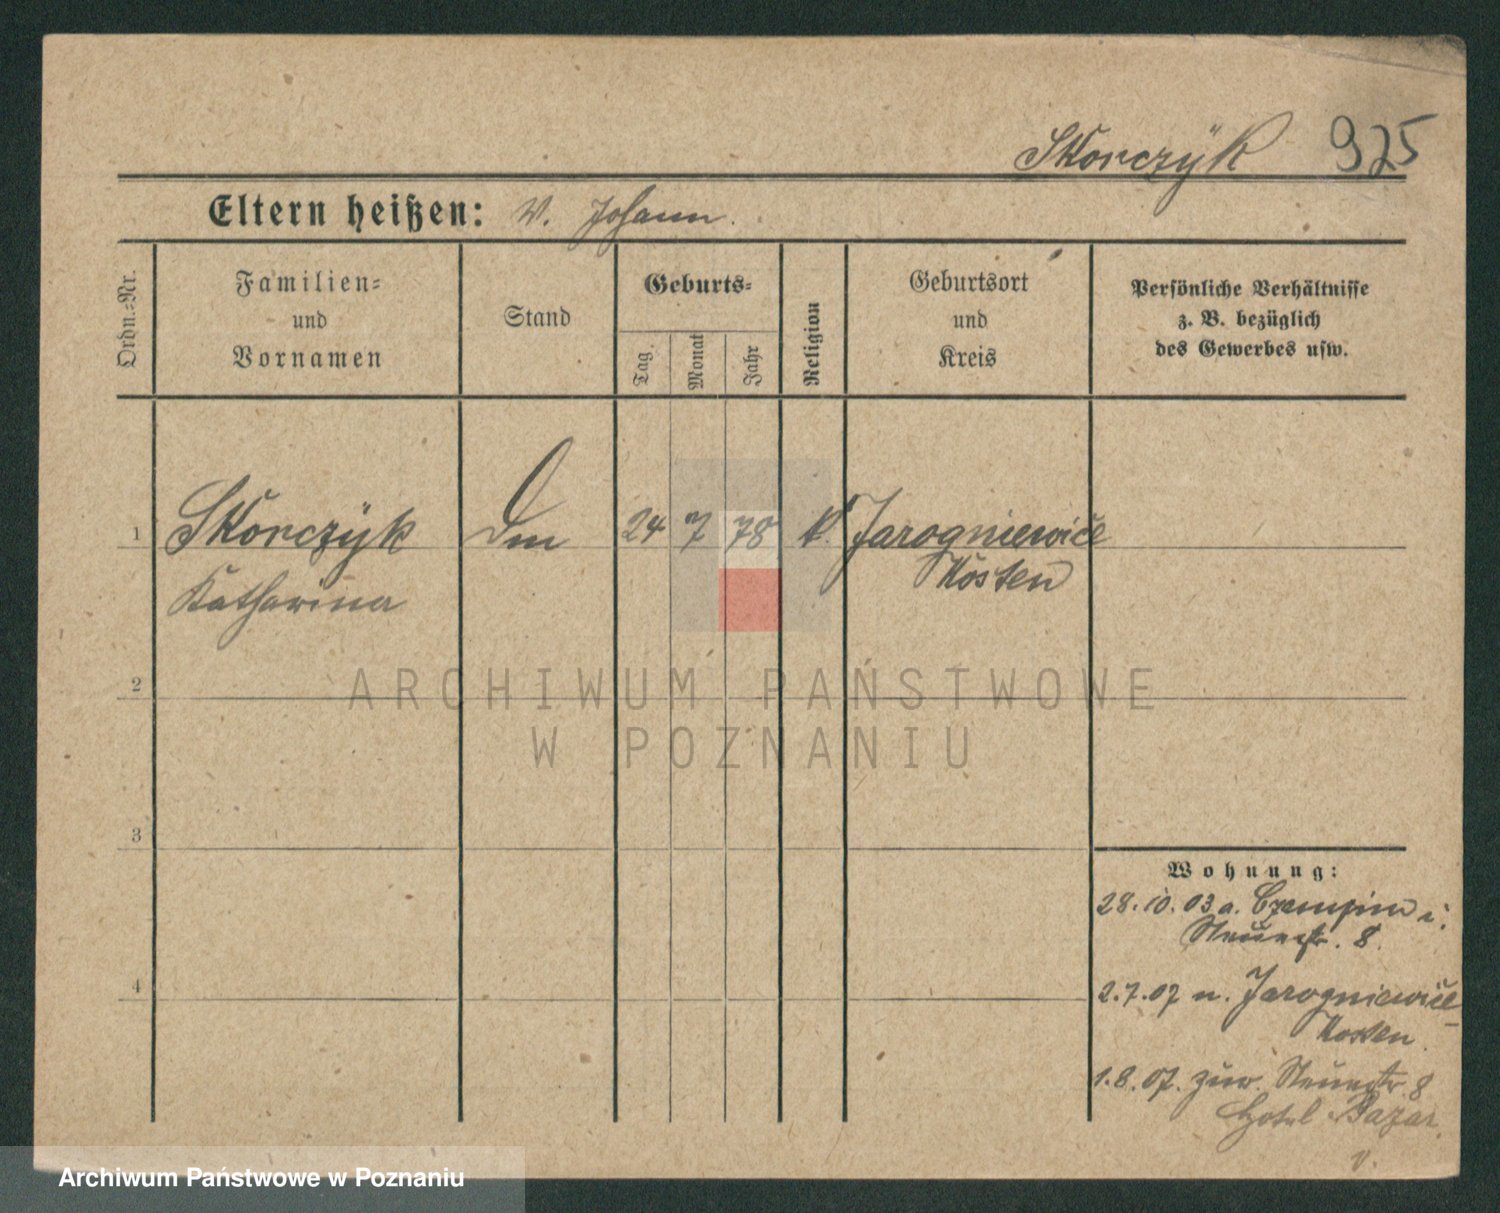 Skorczÿk 925
Eltern heißen: V. Johann.
Ordn.=Nr.
Familien=
und
Vornamen
Stand
Geburts=
Tag.
Monat
Jahr
Religion
Geburtsort
und
Kreis
Persönliche Verhältnisse
z. B. bezüglich
des Gewerbes usw.
1 Skorczÿk 24 7 78 k. Jarogniewice
Katharina Kosten
2
ARCHIWUM PAŃSTWOWE
W POZNANIU
3
Wohnung:
28.10.03 a. Czempin i.
Neuestr. 8.
4
2.7.07 n. Jarogniewice
Kosten.
1.8.07. zur. Neuestr. 8
Hotel Bazar.
v.
Archiwum Państwowe w Poznaniu